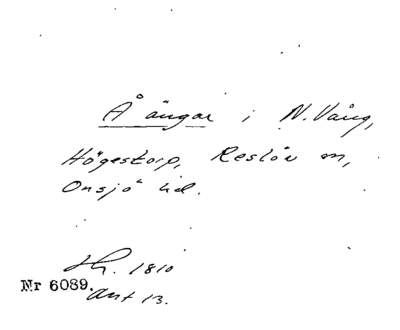 Å ängar i N. Vång,
Högestorp, Reslöv sn,
Onsjö hd.
Lr. 1810
Nr 6089.
Akt 13.